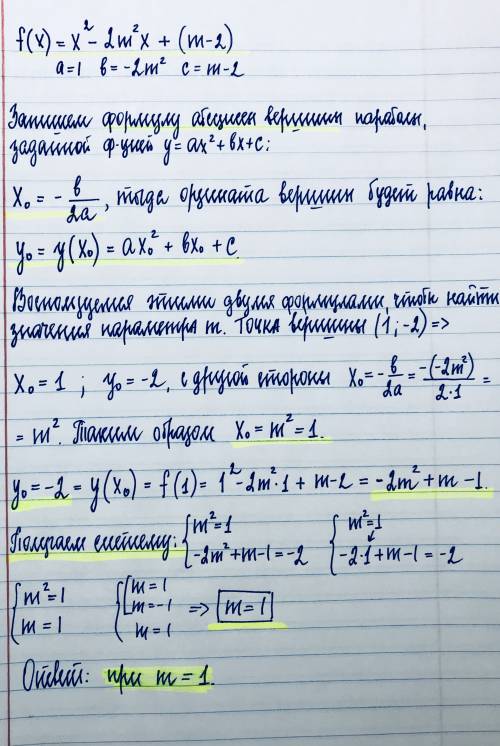 f(x) = x² - 2m²x + (m-2)
a=1 b=-2m² c=m-2
Запишем формулу абсциссы вершины параболы,
заданной ф-цией y = ax² + bx + c:
x₀ = - b/2a, тогда ордината вершины будет равна:
y₀ = y(x₀) = ax₀² + bx₀ + c.
Воспользуемся этими двумя формулами, чтобы найти
значения параметра m. Точка вершины (1; -2) =>
x₀ = 1 ; y₀ = -2, с другой стороны x₀ = - b/2a = -(-2m²)/2·1 =
= m². Таким образом x₀ = m² = 1.
y₀ = -2 = y(x₀) = f(1) = 1² - 2m²·1 + m - 2 = -2m² + m - 1.
Получаем систему: { m² = 1 { m² = 1
-2m² + m - 1 = -2 -2·1 + m - 1 = -2
{ m² = 1 { [ m = 1
m = 1 m = -1 => m = 1
m = 1
Ответ: при m = 1.